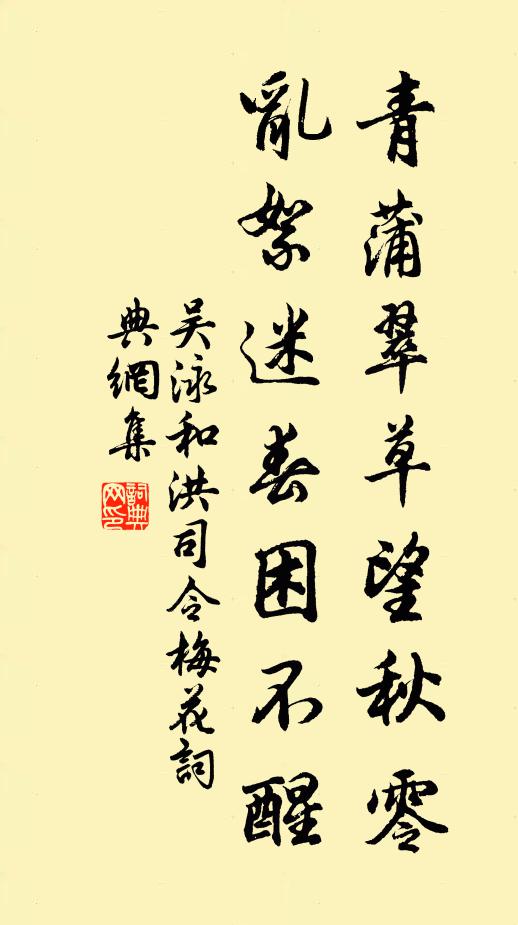 青蒲翠草望秋零
亂絮迷春困不醒
吴泳和洪司令梅花詞
典網集
詞典網印